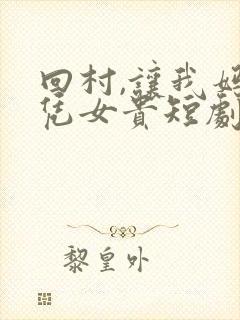 回村,讓我媽
凭女貴短劇
黎皇外